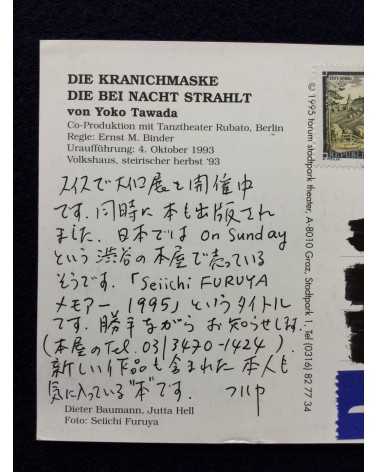 DIE KRANICHMASKE
DIE BEI NACHT STRAHLT
von Yoko Tawada
Co-Produktion mit Tanztheater Rubato, Berlin
Regie: Ernst M. Binder
Uraufführung: 4. Oktober 1993
Volkshaus, steirischer herbst '93
スイスで大回展を開催中
です。同時に本も出版され
ました。日本では on Sunday
という渋谷の本屋で売っている
そうです。「Seiichi FURUYA
メモアー 1995」というタイトル
です。勝手ながらお知らせします
(本屋のTel. 03/3470-1424)。
新しい作品も含まれた本人も
気に入っている"本"です。
Dieter Baumann, Jutta Hell
Foto: Seiichi Furuya
© 1995 forum stadtpark theater, A-8010 Graz, Stadtpark 1, Tel (0316) 82 77 34